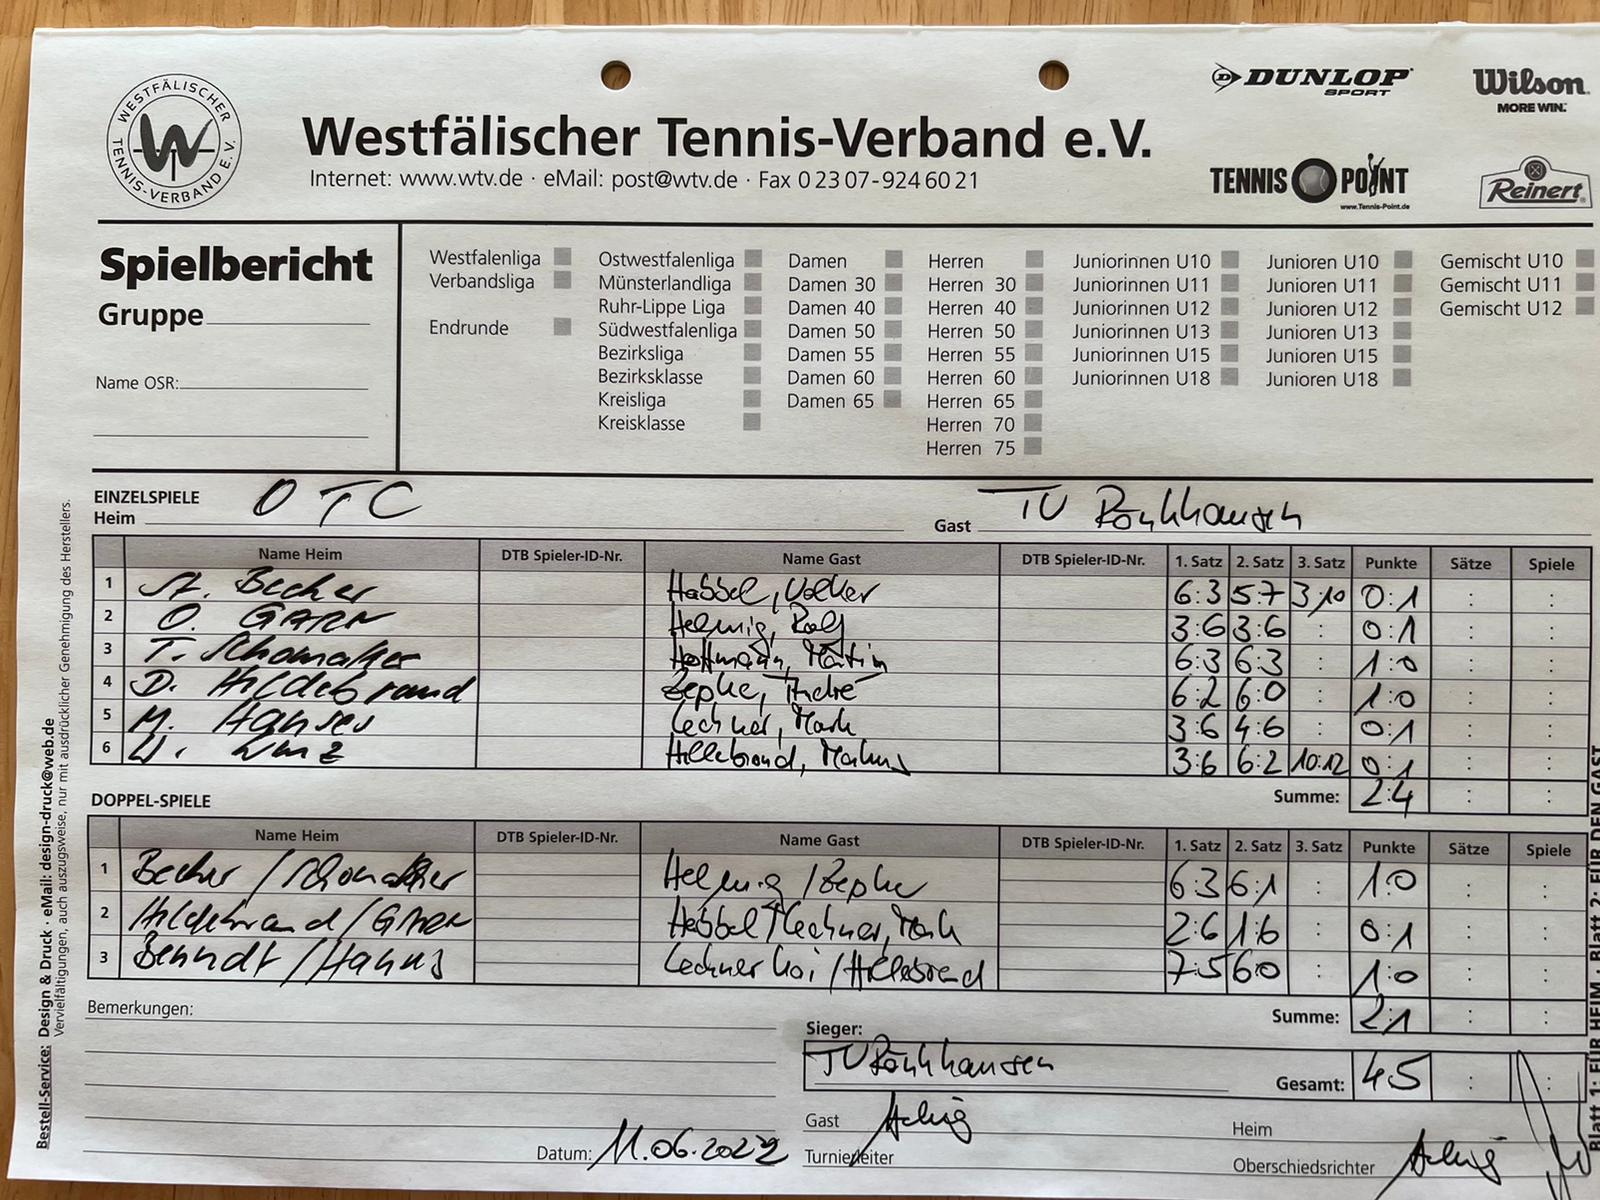 WESTFÄLISCHER TENNIS-VERBAND E.V.
DUNLOP SPORT
Wilson. MORE WIN.
Westfälischer Tennis-Verband e.V.
Internet: www.wtv.de · eMail: post@wtv.de · Fax 0 23 07-924 60 21
TENNIS POINT www.Tennis-Point.de
Reinert
Spielbericht
Gruppe
Name OSR:
Westfalenliga
Verbandsliga
Endrunde
Ostwestfalenliga
Münsterlandliga
Ruhr-Lippe Liga
Südwestfalenliga
Bezirksliga
Bezirksklasse
Kreisliga
Kreisklasse
Damen
Damen 30
Damen 40
Damen 50
Damen 55
Damen 60
Damen 65
Herren
Herren 30
Herren 40
Herren 50
Herren 55
Herren 60
Herren 65
Herren 70
Herren 75
Juniorinnen U10
Juniorinnen U11
Juniorinnen U12
Juniorinnen U13
Juniorinnen U15
Juniorinnen U18
Junioren U10
Junioren U11
Junioren U12
Junioren U13
Junioren U15
Junioren U18
Gemischt U10
Gemischt U11
Gemischt U12
EINZELSPIELE
Heim OTC Gast TV Rönkhausen
Name Heim DTB Spieler-ID-Nr. Name Gast DTB Spieler-ID-Nr. 1. Satz 2. Satz 3. Satz Punkte Sätze Spiele
1 St. Becher Habbel, Volker 6:3 5:7 3:10 0:1 : :
2 O. GARN Helmig, Ralf 3:6 3:6 : 0:1 : :
3 T. Schomaker Hoffmann, Martin 6:3 6:3 : 1:0 : :
4 D. Hildebrand Zepke, André 6:2 6:0 : 1:0 : :
5 M. Hanses Lechner, Mark 3:6 4:6 : 0:1 : :
6 Hillebrand, 3:6 6:2 10:12 0:1 : :
Summe: 2:4 : :
DOPPEL-SPIELE
Name Heim DTB Spieler-ID-Nr. Name Gast DTB Spieler-ID-Nr. 1. Satz 2. Satz 3. Satz Punkte Sätze Spiele
1 Becher / Schomaker Helmig / Zepke 6:3 6:1 : 1:0 : :
2 Hildebrand / GARN Habbel / Lechner, Mark 2:6 1:6 : 0:1 : :
3 Lechner Kai / Hillebrand 7:5 6:0 : 1:0 : :
Bemerkungen:
Summe: 2:1 : :
Sieger:
TV Rönkhausen Gesamt: 4:5 : :
Gast
Heim
Datum: 11.06.2022
Turnierleiter
Oberschiedsrichter
Bestell-Service: Design & Druck · eMail: design-druck@web.de
Vervielfältigungen, auch auszugsweise, nur mit ausdrücklicher Genehmigung des Herstellers.
Blatt 1: FÜR HEIM · Blatt 2: FÜR DEN GAST